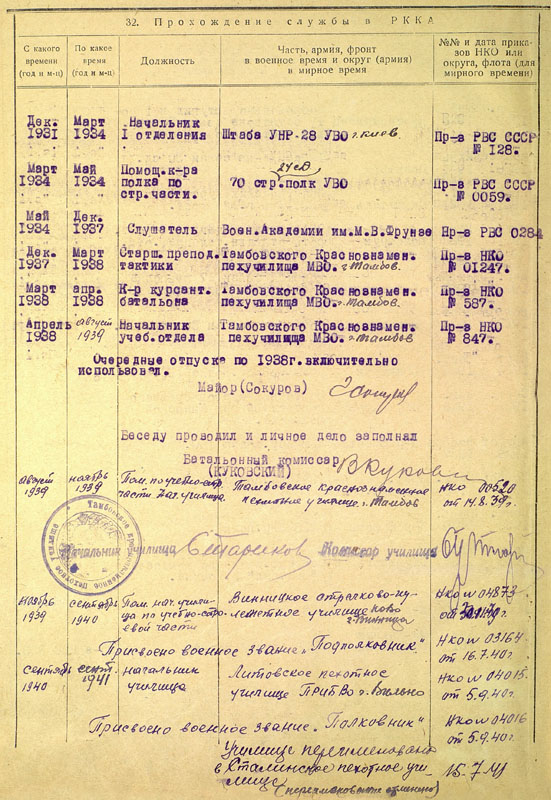 32. Прохождение службы в РККА
С какого времени (год и м-ц)
По какое время (год и м-ц)
Должность
Часть, армия, фронт в военное время и округ (армия) в мирное время
№№ и дата приказов НКО или округа, флота (для мирного времени)
Дек. Март Начальник
1931 1934 I отделения Штаба УНР-28 УВО г. Киев Пр-з РВС СССР
№ 128.
24 сд
Март Май Помощ.к-ра
1934 1934 полка по 70 стр.полк УВО Пр-з РВС СССР
стр.части. № 0059.
Май Дек.
1934 1937 Слушатель Воен.Академии им.М.В.Фрунзе Пр-з РВС 0284
Дек. Март Старш.препод. Тамбовского Краснознамен. Пр-з НКО
1937 1938 тактики пехучилища МВО. г. Тамбов. № 01247.
Март апр. К-р курсант. Тамбовского Краснознамен. Пр-з НКО
1938 1938 батальона пехучилища МВО. г. Тамбов № 587.
Апрель август Начальник Тамбовского Краснознамен. Пр-з НКО
1938 1939 учеб.отдела пехучилища МВО. г. Тамбов № 847.
Очередные отпуска по 1938г.включительно
использовал.
Майор(Сокуров)
Беседу проводил и личное дело заполнал
Батальонный комиссар
(КУКОВСКИЙ)
август ноябрь Пом. по учебно-стр. Тамбовское краснознаменное НКО 00520
1939 1939 части нач. училища пехотное училище г. Тамбов от 14.8.39г.
Начальник училища Стариков Комиссар училища
Ноябрь сентябрь Пом. нач. учили- Винницкое стрелково-пу- НКО № 04873
1939 1940 ща по учебно-стро- леметное училище КОВО от
евой части г. Винница
Присвоено военное звание „Подполковник" НКО № 03164
от 16.7.40г.
сентябрь сент. начальник Литовское пехотное НКО № 04015
1940 1941 училища училище ПрибВо г. Вильно от 5.9.40г.
Присвоено военное звание „Полковник" НКО № 04016
от 5.9.40г
Училище переименовано
в Сталинское пехотное учи- 15.7.41
лище